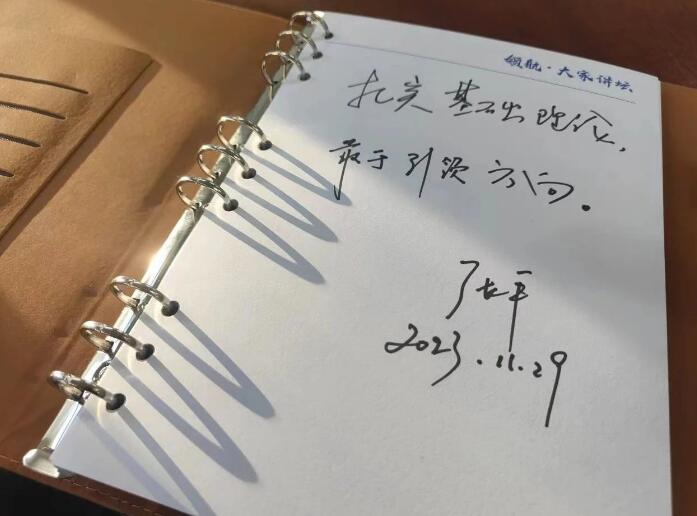 领航·大家讲坛
扎实基础理论，
敢于引领方向。
张平
2023.11.29